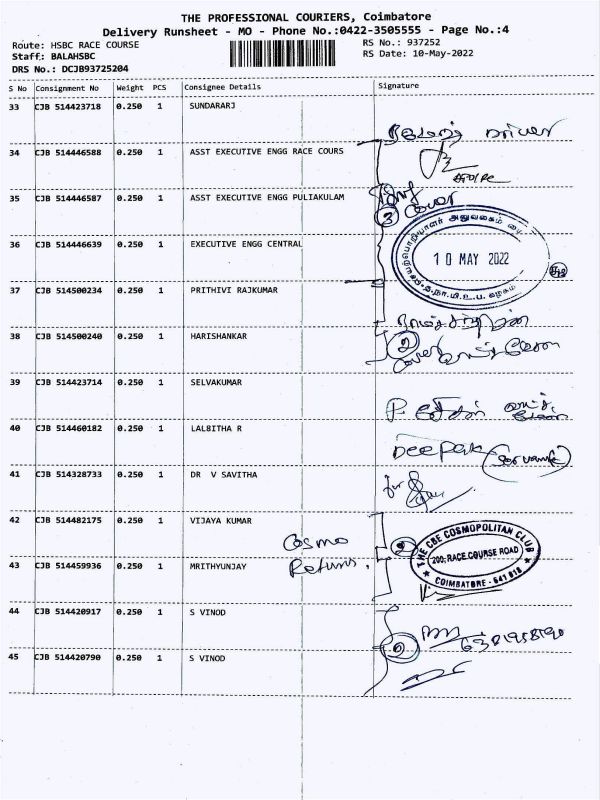 THE PROFESSIONAL COURIERS, Coimbatore
Delivery Runsheet - MO - Phone No.:0422-3505555 - Page No.:4
Route: HSBC RACE COURSE
RS No.: 937252
Staff: BALAHSBC
RS Date: 10-May-2022
DRS No.: DCJB93725204
S No Consignment No Weight PCS Consignee Details Signature
33 CJB 514423718 0.250 1 SUNDARARJ
34 CJB 514446588 0.250 1 ASST EXECUTIVE ENGG RACE COURS
35 CJB 514446587 0.250 1 ASST EXECUTIVE ENGG PULIAKULAM
3
36 CJB 514446639 0.250 1 EXECUTIVE ENGG CENTRAL
10 MAY 2022
37 CJB 514500234 0.250 1 PRITHIVI RAJKUMAR
38 CJB 514500240 0.250 1 HARISHANKAR
2
39 CJB 514423714 0.250 1 SELVAKUMAR
40 CJB 514460182 0.250 1 LAL8ITHA R
Deepak
41 CJB 514328733 0.250 1 DR V SAVITHA
for
42 CJB 514482175 0.250 1 VIJAYA KUMAR
Cosmo
2
THE CBE COSMOPOLITAN CLUB
200, RACE COURSE ROAD
COIMBATORE - 641 018
43 CJB 514459936 0.250 1 MRITHYUNJAY
44 CJB 514420917 0.250 1 S VINOD
45 CJB 514420790 0.250 1 S VINOD